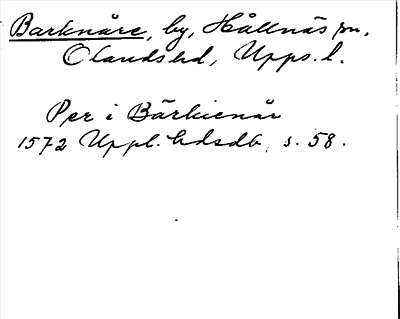 Barknåre, by, Hållnäs sn,
Olands hd, Upps. l.
Per i Bärkienår
1572 Uppl. hdsdb, s. 58.